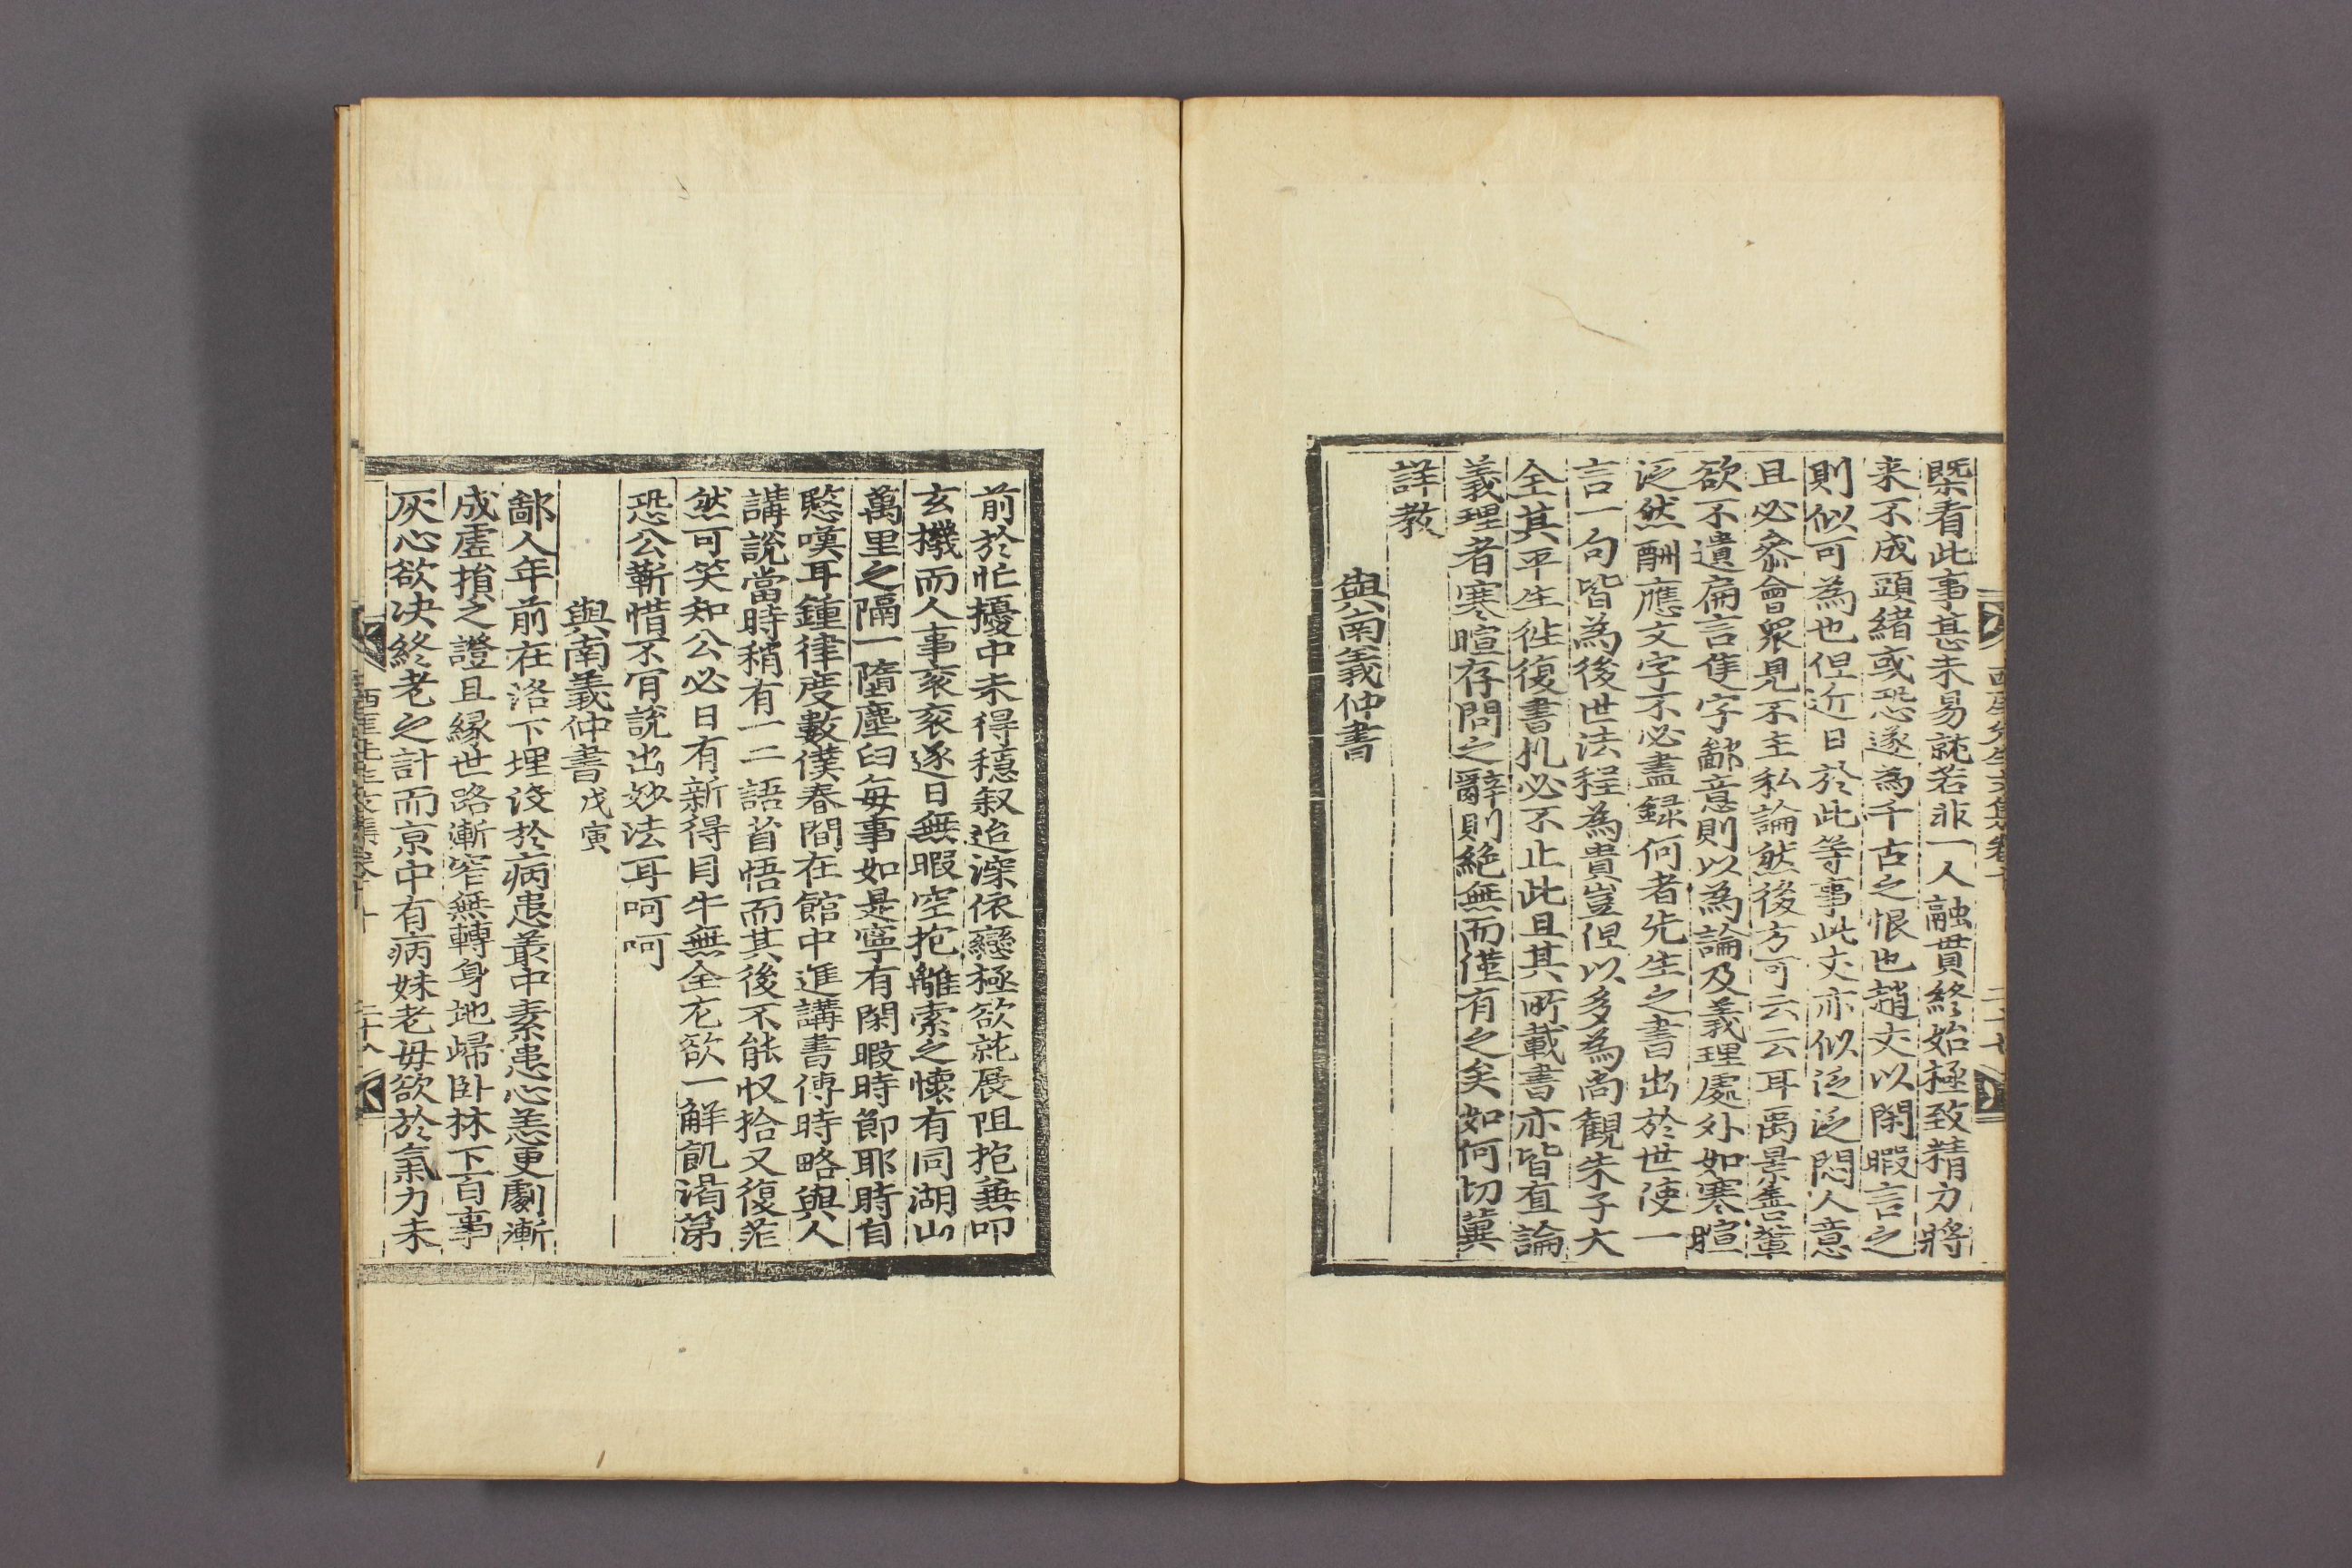 槩看此事甚未易就若非一人融貫終始極致精力將
来不成頭緖或恐遂為千古之恨也趙丈以閑暇言之
則似可為也但近日於此等事此丈亦似泛泛悶人意
且必叅會衆見不主私論然後方可云云耳禹景善輩
欲不遺扁言隻字鄙意則以為論及義理處外如寒暄
泛然酬應文字不必盡録何者先生之書出於世使一
言一句皆為後世法程為貴豈但以多為尚觀朱子大
全其平生徃復書札必不止此且其所載書亦皆直論
義理者寒暄存問之辭則絶無而僅有之矣如何切冀
詳教
與南義仲書
西厓先生文集卷十 二十七
前於忙擾中未得穩叙迨深依戀極欲就展阻抱兼叩
玄機而人事亥亥逐日無暇空抱離索之懷有同湖山
萬里之隔一墮塵臼每事如是寧有閑暇時節耶時自
慜嘆耳鍾律度數僕春間在館中進講書傳時略與人
講說當時稍有一二語省悟而其後不能収拾又復茫
然可笑知公必日有新得目牛無全尤欲一解飢渴第
恐公蘄惜不肎說出妙法耳呵呵
與南義仲書戊寅
鄙人年前在洛下埋沒於病患叢中素患心恙更劇漸
成虛損之證且縁世路漸窄無轉身地歸卧林下百事
灰心欲决終老之計而京中有病妹老母欲於氣力未
西厓先生文集卷十 二十八